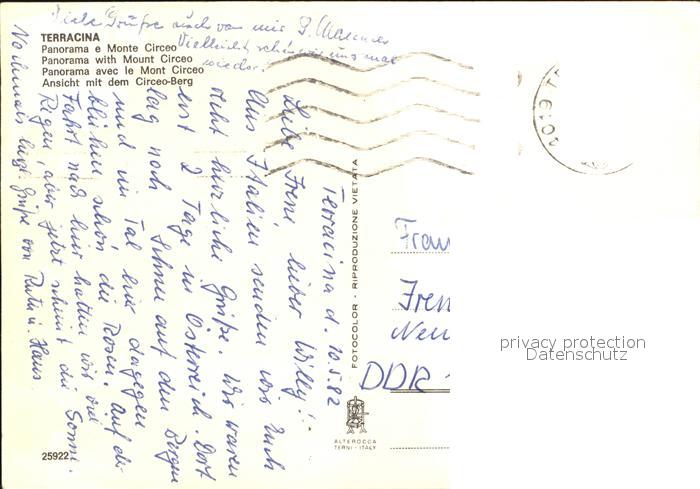 Viele Grüße auch von mir
Vielleicht sehen wir uns mal
wieder.
TERRACINA
Panorama e Monte Circeo
Panorama with Mount Circeo
Panorama avec le Mont Circeo
Ansicht mit dem Circeo-Berg
Terracina d. 10.5.82
Liebe Irene, lieber Willy!
Aus Italien senden wir Euch
recht herzliche Grüße. Wir waren
erst 2 Tage in Österreich. Dort
lag noch Schnee auf den Bergen
und im Tal hier dagegen
blühen schon die Rosen. Auf der
Fahrt nach hier hatten wir viel
Regen, aber jetzt scheint die Sonne.
Nochmals herzl. Grüße von Ruth u. Hans
FOTOCOLOR - RIPRODUZIONE VIETATA
Frau
DDR
ALTEROCCA
TERNI - ITALY
25922
privacy protection
Datenschutz